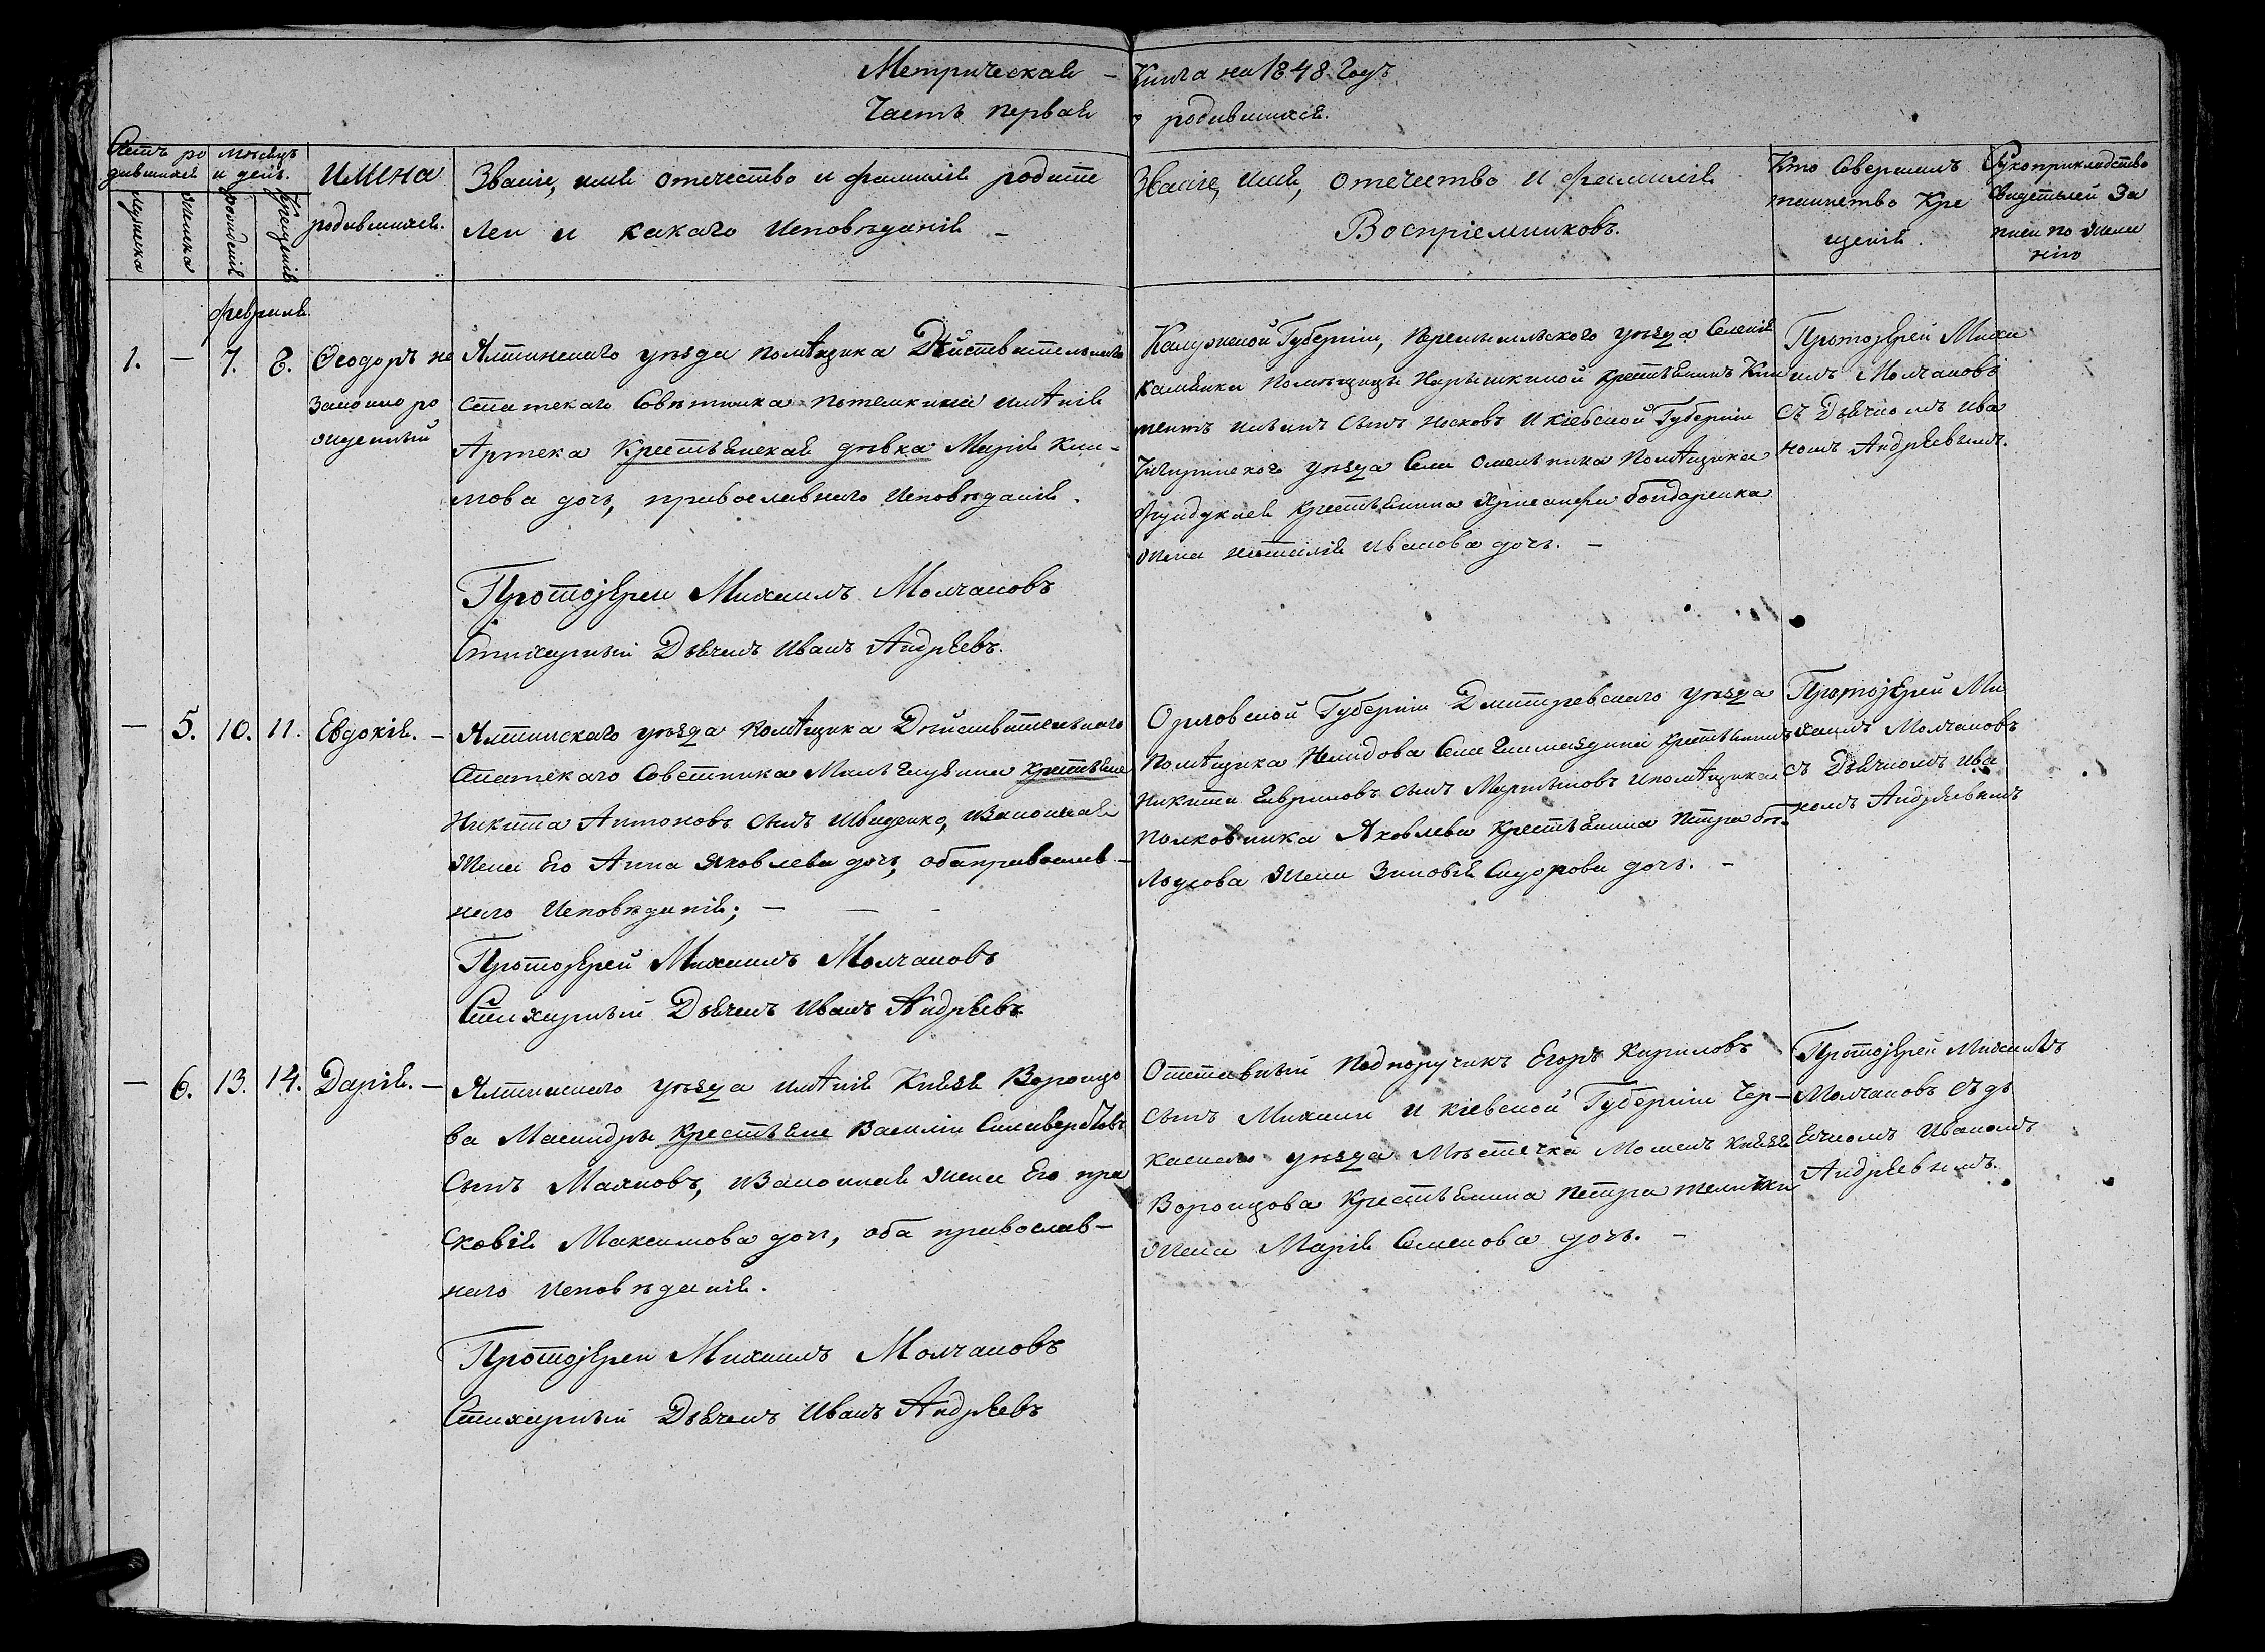 Метрическая – Книга на 1848 Годъ
Часть первая о родившихся.
Счетъ ро
дившихся
мужеска
женска
Мѣсяцъ
и день.
рожденія
крещенія
Имена
родившихся.
Званіе, имя отечество и фамилія родите
лей и какаго Исповѣданія –
Званіе, Имя, отечество и фамилія
Воспріемниковъ.
Кто Совершилъ
таинство Кре
щенія.
Рукоприкладство
Свидѣтелей За
писи по жела
нію
Февраля.
1. – 7. 8. Ѳеодоръ не
законно ро
жденный
Ялтинскаго уѣзда помѣщика Дѣйствительнаго
Статскаго Совѣтника Потемкина имѣнія
Артека Крестьянская дѣвка Марія Кли-
мова дочь, православнаго Исповѣданія.
Протоіерей Михаилъ Молчановъ
Стихарный Дьячекъ Иванъ Андреевъ.
Калужской Губерніи, Перемышльского уѣзда Селенія
Каменки Помѣщицы Нарышкиной крестьянинъ Кли
ментъ сынъ Носковъ И Кіевской Губерніи
Чигиринского уѣзда Села Омельника Помѣщика
Фундуклея крестьянина Хрисанфа Бондаренка
жена Наталія Иванова дочь. –
Протоіерей Миха
илъ Молчановъ
съ Дьячкомъ Ива
номъ Андреевымъ.
– 5. 10. 11. Евдокія. –
Ялтинскаго уѣзда помѣщика Дѣйствительнаго
Статскаго Советника крестьяне
Никита Антоновъ сынъ Швиденко, и законная
жена Его Анна Яковлева дочь, оба православ-
наго Исповѣданія; –
Протоіерей Михаилъ Молчановъ
Стихарный Дьячекъ Иванъ Андреевъ
Орловской Губерніи Дмитревскаго уѣзда
Помѣщика Нелидова Села крестьянинъ
Никита Гавриловъ сынъ Мартыновъ И помѣщика
полковника Яковлева крестьянина Петра Бог-
жена Зиновія Сидорова дочь. –
Протоіерей Ми
хаилъ Молчановъ
съ Дьячкомъ Ива
номъ Андреевымъ
– 6. 13. 14. Дарія. –
Ялтинскаго уѣзда имѣнія Князя Воронцо
ва Масандры крестьяне Василій Силиверстовъ
Сынъ Маяковъ, и законная жена Его Пра
сковія Максимова дочь, оба православ-
наго Исповѣданія.
Протоіерей Михаилъ Молчановъ
Стихарный Дьячекъ Иванъ Андреевъ
Отставный Подпоручикъ Егоръ Кириловъ
сынъ и Кіевской Губерніи Чер-
каскаго уѣзда Мѣстечка Мошенъ Князя
Воронцова крестьянина Петра
жена Марія Семенова дочь. –
Протоіерей Михаилъ
Молчановъ съ дь
ячкомъ Иваномъ
Андреевымъ.